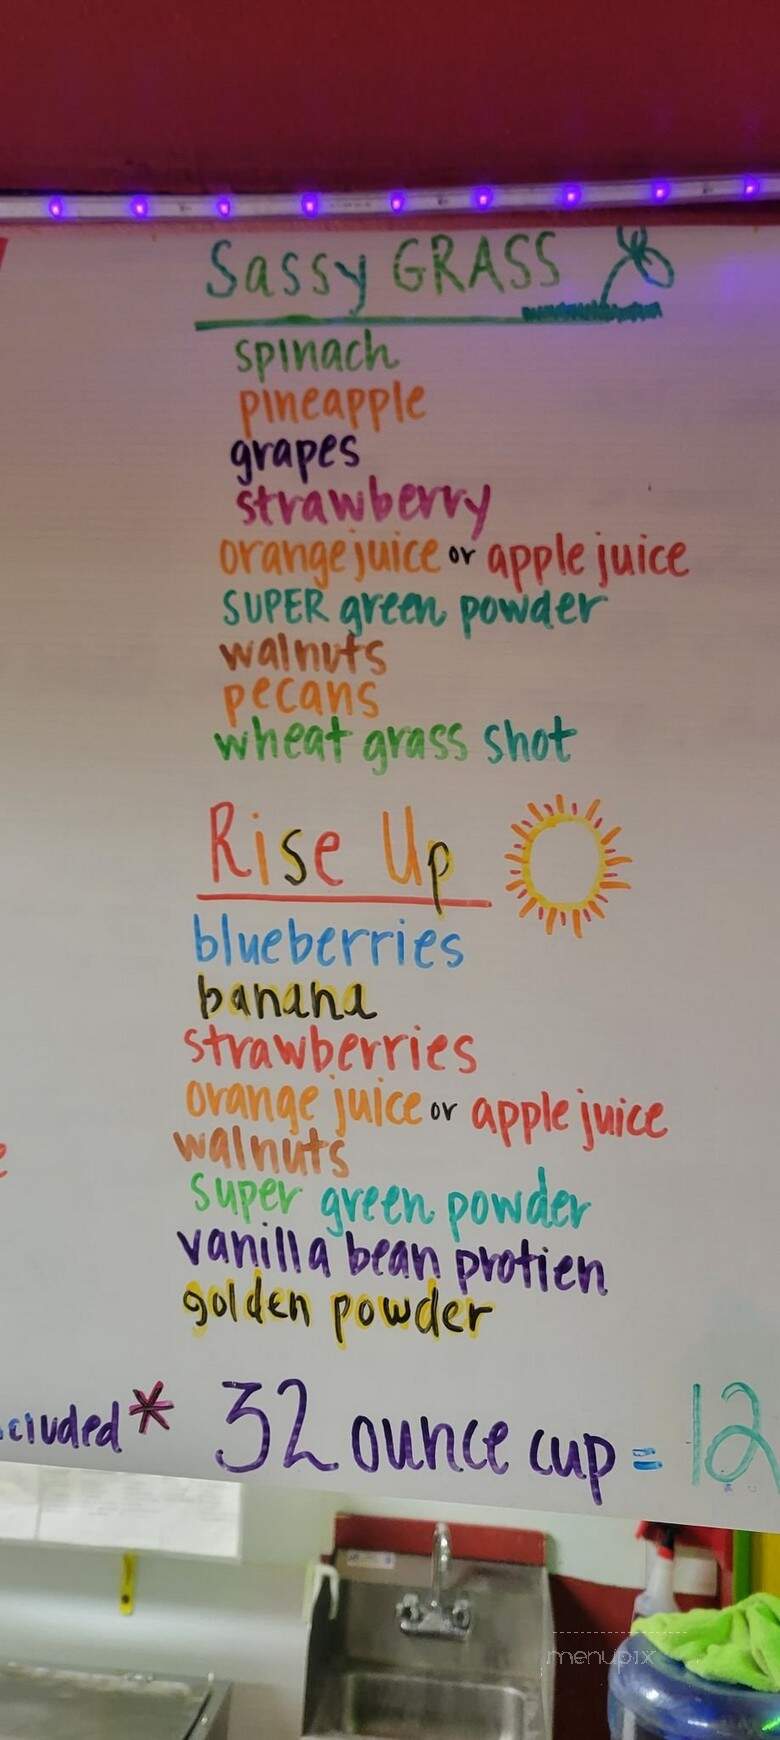 Sassy GRASS
spinach
pineapple
grapes
strawberry
orange juice or apple juice
SUPER green powder
walnuts
pecans
wheat grass shot
Rise Up
blueberries
banana
strawberries
orange juice or apple juice
walnuts
super green powder
vanilla bean protien
golden powder
* 32 ounce cup = 12
menupix